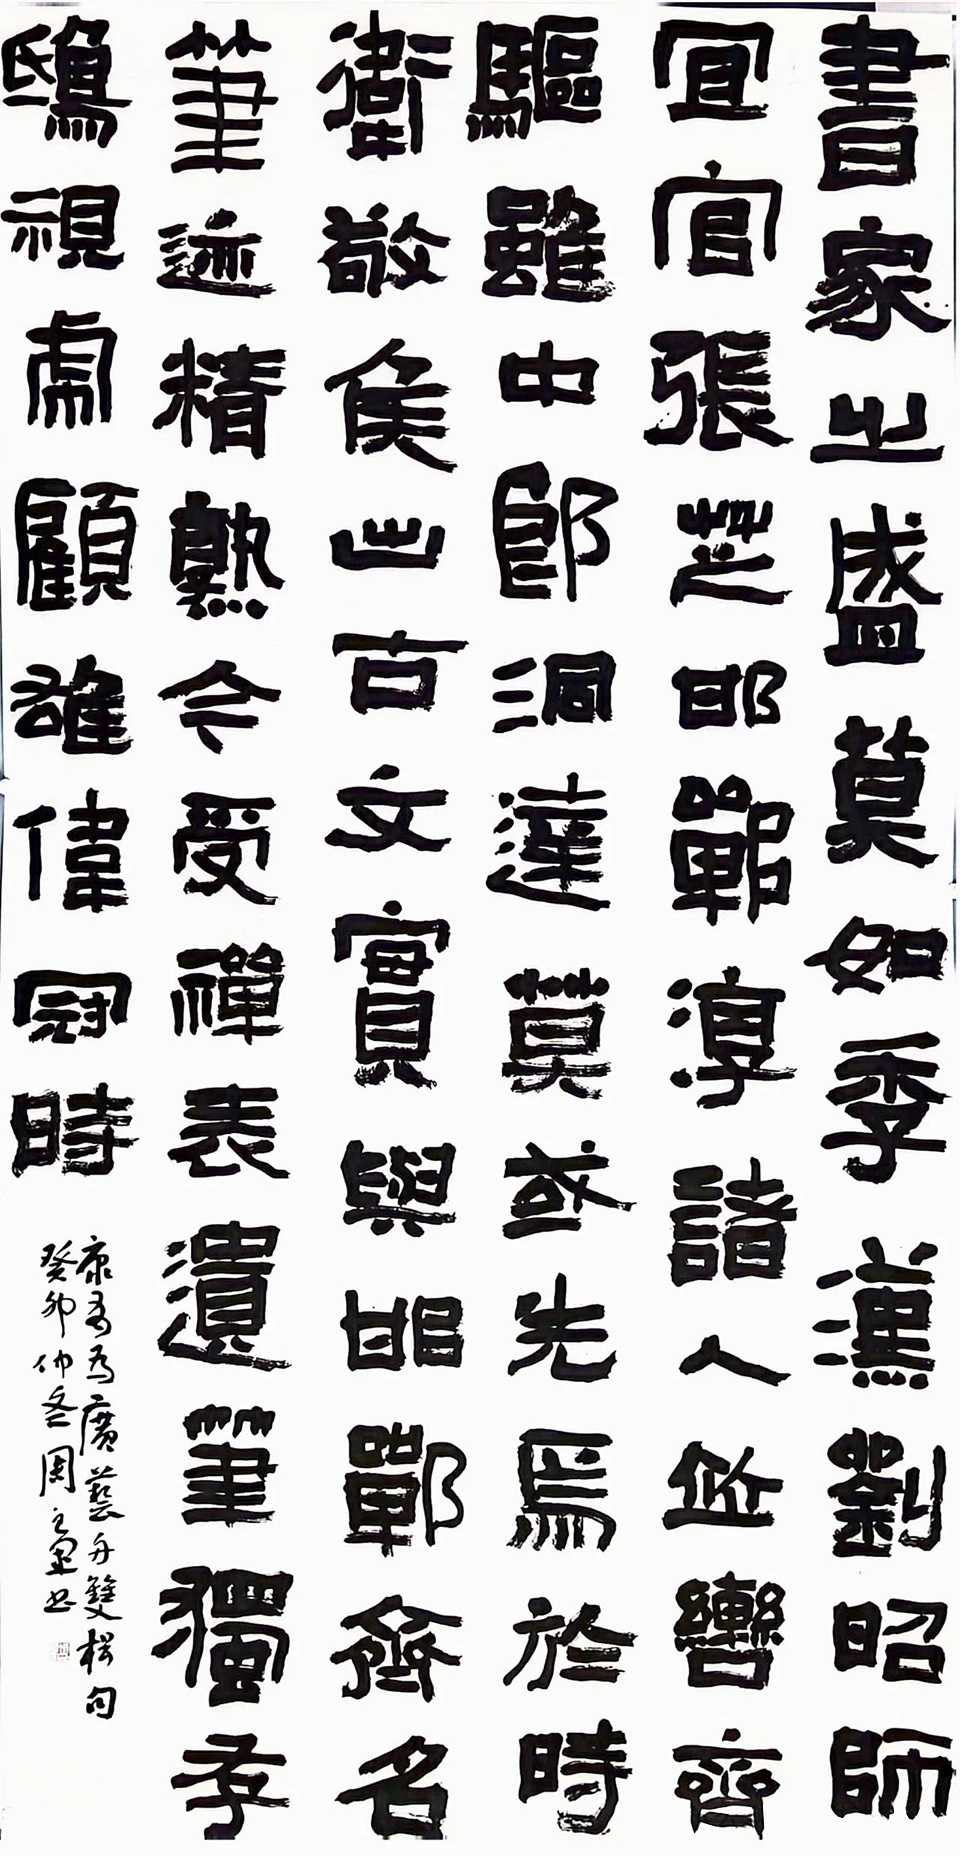 書家之盛莫如季漢劉昭師
宜官張芝邯鄲淳諸人並轡齊
驅雖中郎洞達莫或先焉於時
衛敬侯出古文實與邯鄲齊名
筆迹精熟今受禪表遺筆獨存
鴟視虎顧雄偉冠時
康有為廣藝舟雙楫句
癸卯仲冬周書